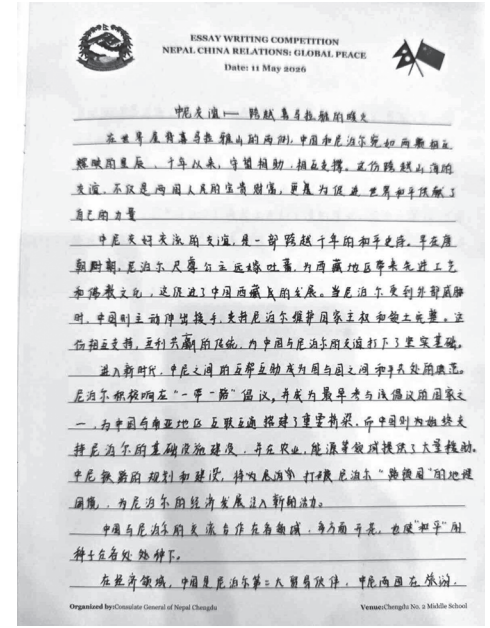 ESSAY WRITING COMPETITION
NEPAL CHINA RELATIONS: GLOBAL PEACE
Date: 11 May 2026
中尼友谊——跨越喜马拉雅的
在世界屋脊喜马拉雅山的两侧,中国和尼泊尔宛如两颗相互
辉映的星辰,千年以来,守望相助,相互支撑。这份跨越山海的
友谊,不仅是两国人民的宝贵财富,更是为促进世界和平贡献了
自己的力量
中尼友好交流的友谊,是一部跨越千年的和平史诗。早在唐
朝时期,尼泊尔尺尊公主远嫁吐蕃,为西藏地区带来先进工艺
和佛教文化,这促进了中国西藏的发展。当尼泊尔受到外部威胁
时,中国则主动伸出援手,支持尼泊尔维护国家主权和领土完整。这
份相互支持,互利共赢的传统,为中国与尼泊尔的友谊打下了坚实基础。
进入新时代,中尼之间的互帮互助成为国与国之间和平共处的典范。
尼泊尔积极响应“一带一路”倡议,并成为最早参与该倡议的国家之
一,为中国与南亚地区互联互通搭建了重要桥梁。而中国则为始终支
持尼泊尔的基础设施建设,并在农业,能源等领域提供了大量援助。
中尼铁路的规划和建设,将为尼泊尔打破尼泊尔“陆锁国”的地理
困境,为尼泊尔的经济发展注入新的活力。
中国与尼泊尔的交流合作在各领域,多方面开花,也使“和平”的
种子在各处种下。
在经济领域,中国是尼泊尔第二大贸易伙伴,中尼两国在旅游,
Organized by:Consulate General of Nepal Chengdu
Venue:Chengdu No. 2 Middle School